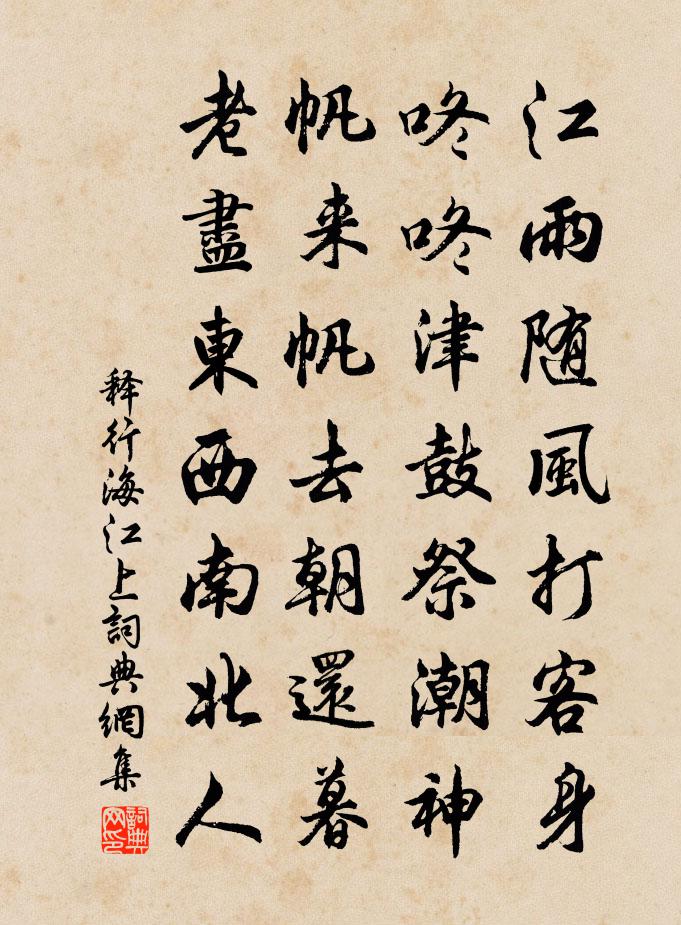 江雨随風打客身
咚咚津鼓祭潮神
帆来帆去朝還暮
老盡東西南北人
释行海江上詞典網集
詞典网印